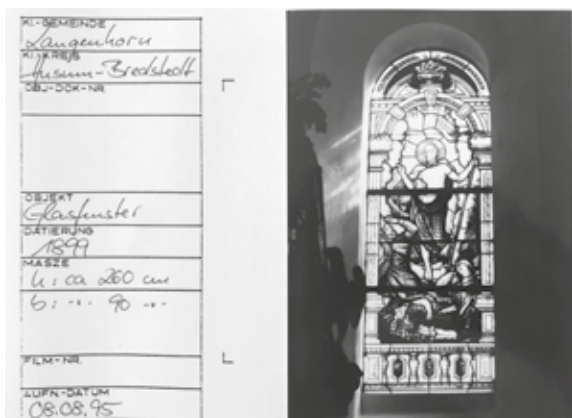 KI.-GEMEINDE
Langenhorn
KI.-KREIS
Husum-Bredstedt
OBJ-DOK-NR.
OBJEKT
Glasfenster
DATIERUNG
1899
MASZE
h: ca 260 cm
b: -"- 90 -"-
FILM-NR.
AUFN.-DATUM
08.08.95